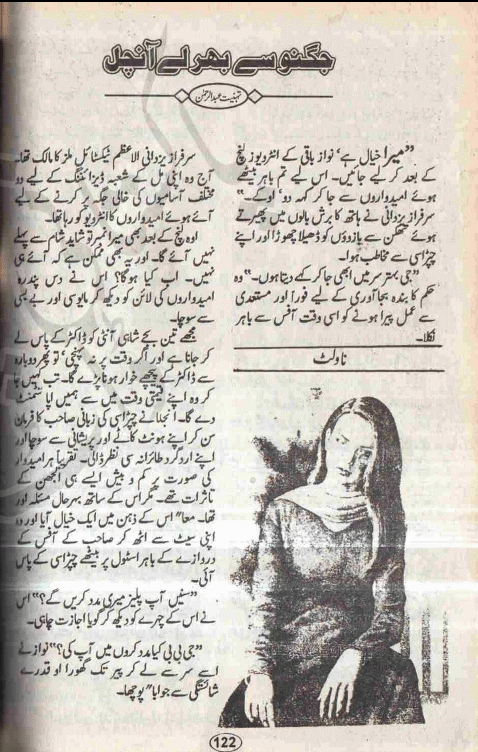 جگنو سے بھر لے آنچل
تہنیت عبدالرحمٰن
”میرا خیال ہے‘ نواز باقی کے انٹرویوز لنچ
کے بعد کر لیے جائیں۔ اس لیے تم باہر بیٹھے
ہوئے امیدواروں سے جا کر کہہ دو‘ اوکے۔“
سرفراز یزدانی نے ہاتھ کا برش بالوں میں پھیرتے
ہوئے تھکن سے بازوؤں کو ڈھیلا چھوڑا اور اپنے
چپڑاسی سے مخاطب ہوا۔
”جی بہتر سر میں ابھی جا کر کہے دیتا ہوں۔“ وہ
حکم کا بندہ بجا آوری کے لیے فوراً اور مستعدی
سے عمل پیرا ہونے کو اسی وقت آفس سے باہر
نکلا۔
ناولٹ
سرفراز یزدانی الاعظم ٹیکسٹائل ملز کا مالک تھا۔
آج وہ اپنی مل کے شعبہ ڈیزائننگ کے لیے دو
مختلف آسامیوں کی خالی جگہ پر کرنے کے لیے
آئے ہوئے امیدواروں کا انٹرویو کر رہا تھا۔
اوہ لنچ کے بعد بھی میرا نمبر تو شاید شام سے پہلے
نہیں آئے گا۔ اور یہ بھی ممکن ہے کہ آئے ہی
نہیں۔ اب کیا ہوگا؟ اس نے دس پندرہ
امیدواروں کی لائن کو دیکھ کر مایوسی اور بے بسی
سے سوچا۔
مجھے تین بجے شاہی آنٹی کو ڈاکٹر کے پاس لے
کر جانا ہے اور اگر وقت پر نہ پہنچی‘ تو پھر دوبارہ
سے ڈاکٹر کے پیچھے خوار ہونا پڑے گا۔ تب کہیں جا
کر وہ اپنے قیمتی وقت میں سے ہمیں اپائنٹمنٹ
دے گا۔ انجلا نے چپڑاسی کی زبانی صاحب کا فرمان
سن کر اپنے ہونٹ کاٹے اور پریشانی سے سوچا اور
اپنے ارد گرد طائرانہ سی نظر ڈالی۔ تقریباً ہر امیدوار
کی صورت پر کم و بیش ایسے ہی الجھن کے
تاثرات تھے۔ مگر اس کے ساتھ بہرحال مسئلہ اور
تھا۔ معاً اس کے ذہن میں ایک خیال آیا اور وہ
اپنی سیٹ سے اٹھ کر صاحب کے آفس کے
دروازے کے باہر اسٹول پر بیٹھے چپڑاسی کے پاس
آئی۔
”سنیں آپ پلیز میری مدد کریں گے؟“ اس
نے اس کے چہرے کو دیکھ کر گویا اجازت چاہی۔
”جی بی بی کیا مدد کروں میں آپ کی؟“ نواز نے
اسے سر سے لے کر پیر تک گھورا او قدرے
شائستگی سے جواباً پوچھا۔
122